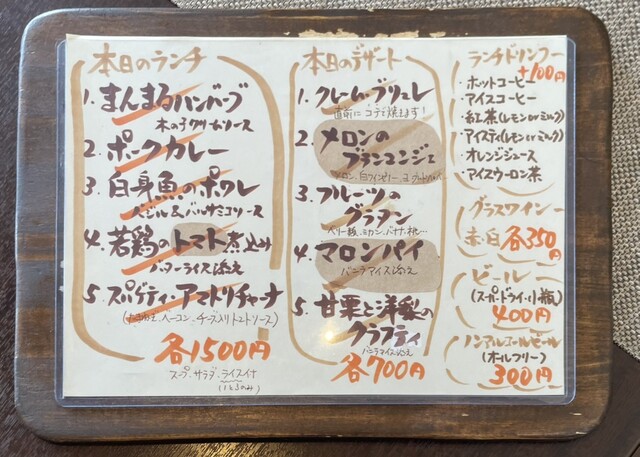 本日のランチ
1. まんまるハンバーグ
木の子クリームソース
2. ポークカレー
3. 白身魚のポワレ
バジル&バルサミコソース
4. 若鶏のトマト煮込み
バターライス添え
5. スパゲティ・アマトリチャーナ
ベーコン、チーズ入りトマトソース)
各1500円
スープ、サラダ、ライス付
本日のデザート
1. クレーム・ブリュレ
直前にコテで焼きます!
2. メロンの
ブランマンジェ
3. フルーツの
グラタン
ベリー類、ミカン、バナナ、桃...
4. マロンパイ
バニラアイス添え
5. 甘栗と洋梨の
クラフティ
バニラアイス添え
各700円
ランチドリンク
+100円
・ホットコーヒー
・アイスコーヒー
・紅茶(レモン or ミルク)
・アイスティ(レモン or ミルク)
・オレンジジュース
・アイスウーロン茶
グラスワイン
赤・白 各350円
ビール
(スーパードライ・小瓶)
400円
ノンアルコールビール
(オールフリー)
300円